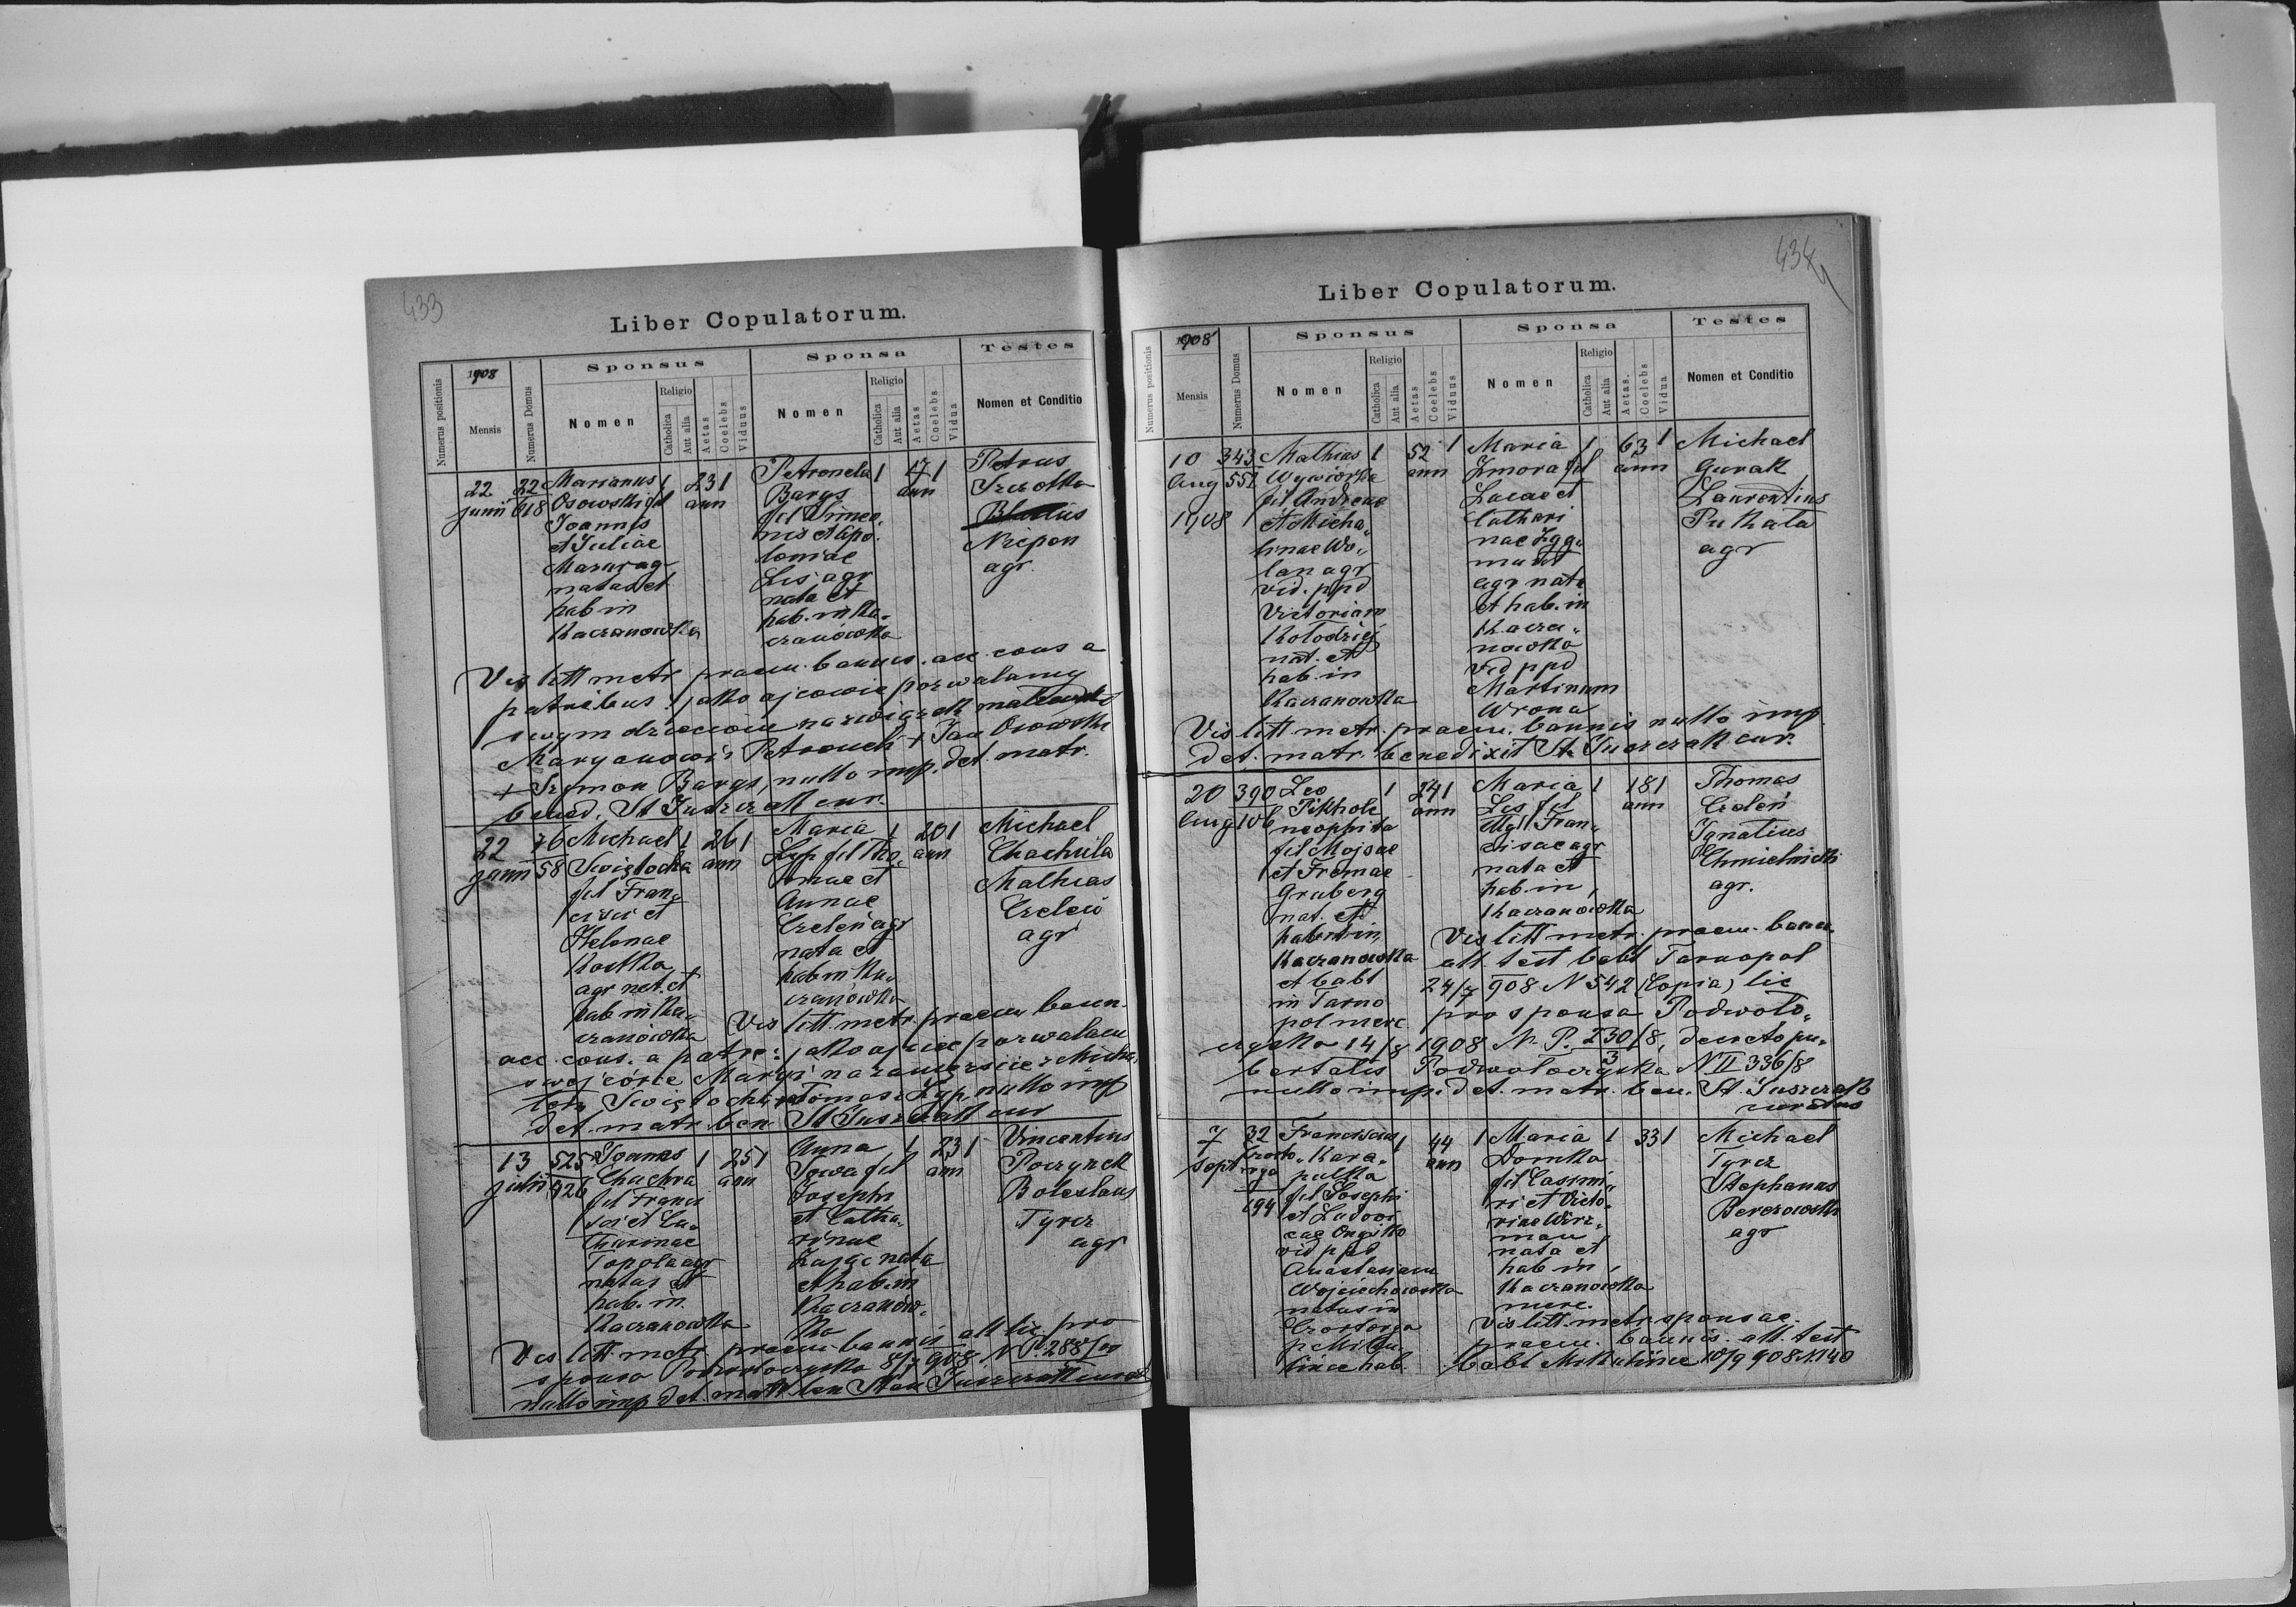 433
Liber Copulatorum.
Numerus positionis
1908
Mensis
Numerus Domus
Sponsus
Nomen
Religio
Catholica
Aut alia
Aetas
Coelebs
Viduus
Sponsa
Nomen
Religio
Catholica
Aut alia
Aetas
Coelebs
Vidua
Testes
Nomen et Conditio
22
junii
22
618
Marianus
Osowski fil
Joannis
et Juliae
Mazur ag
natus et
hab in
Kaczanowka
1
23 1
ann
Petronela
Bargs
fil Simeo,
nis et Apo.
loniae
Lis agr
nata et
hab. in Ka,
czanówka
1
17 1
ann
Petrus
Szczotka
Nrepon
agr.
Vis litt metr praem. bannis. acc. cons a
patribus: jako ojcowie pozwalamy
swym dzieciom na związek
Maryanowi i Petroneli + Jan Osowski
+ Szymon Bargs, nullo imp. det. matr.
bened. St Juszczak cur.
22
junii
76
58
Michael
Swistocha
fil Fran,
cisci et
Helenae
Kostka
agr nat. et
hab in Ka,
czanówka
1
26 1
ann
Maria
Lyp fil Tho,
mae et
Annae
Czeleń agr
nata et
hab in Ka,
czanówka
1
20 1
ann
Michael
Chachula
Mathias
Czeleń
agr
Vis litt. metr. praem bann.
acc. cons. a patre: jako ojciec pozwalam
swej córce Maryi na zamęzście z Micha,
łem Tomasz Lyp nullo imp
det. matr. ben St Juszczak cur
13
julii
525
426
Joannes
Chachra
fil Francis
sci et Ca,
tharinae
Topola agr
natus et
hab. in
Kaczanowka
1
25 1
ann
Anna
Sowa fil
Josephi
et Catha,
rinae
Zając nata
et hab. in
Kaczanów,
ka
1
23 1
ann
Vincentius
Poczynek
Boleslaus
Tyrcz
agr
Vis litt. metr praem bannis all lic. pro
sponso Podwoloczyska 8/7 908 N P. 288/00
nullo imp det. matr ben Stan Juszczak curat
434
Liber Copulatorum.
Numerus positionis
1908
Mensis
Numerus Domus
Sponsus
Nomen
Religio
Catholica
Aut alia
Aetas
Coelebs
Viduus
Sponsa
Nomen
Religio
Catholica
Aut alia
Aetas.
Coelebs
Vidua
Testes
Nomen et Conditio
10
Aug
1908
343
551
Mathias
Wywiórka
fil Andreae
et Micha,
linae Wo,
lan agr
vid. ppd
Victoriam
Kołodziej
nat. et
hab. in
Kaczanowka
1
52 1
ann
Maria
Zmora fil
Lucae et
Cathari
nae Zyg,
munt
agr nata
et hab. in
Kacza,
nowka
vid ppd
Martinum
Wrona
1
63 1
ann
Michael
Gurak
Laurentius
Pukala
agr
Vis litt. metr. praem. bannis nullo imp.
det. matr. benedixit St. Juszczak cur.
20
Aug
390
106
Leo
Pikholc
neophita
fil Mojsae
et Fremae
Gruberg
nat. et
hab in
Kaczanowka
et babt
in Tarno
pol merc
1
24 1
ann
Maria
Lis fil
illgt Fran,
cisae agr
nata et
hab. in
Kaczanówka
1
18 1
ann
Thomas
Czeleń
Ignatius
Chmielnicki
agr.
Vis litt metr. praem. bann.
all. test babt Tarnopol
24/7 908 N 542 (Copia) lic
pro sponsa Podwoło,
czyska 14/8 1908 N. P. 230/8, decreto pu,
3
bertatis Podwołoczyska N II 336/8
nullo imp. det. matr. ben. St. Juszczak
curatus
7
Sept
32
194
Franciscus
Kara,
pulka
fil Josephi
et Ludovi
cae
vid ppd
Anastasiam
Wojciechowska
natus in
p Miku,
lince hab.
1
44 1
ann
Maria
Domka
fil Casimi,
ri et Victo,
riae Wirz,
man
nata et
hab in
Kaczanowka
merc.
1
33 1
Michael
Tyrcz
Stephanus
Berezowski
agr
Vis litt. metr sponsae.
praem. bannis. all. test
babt Mikulince 10/9 908 N 140